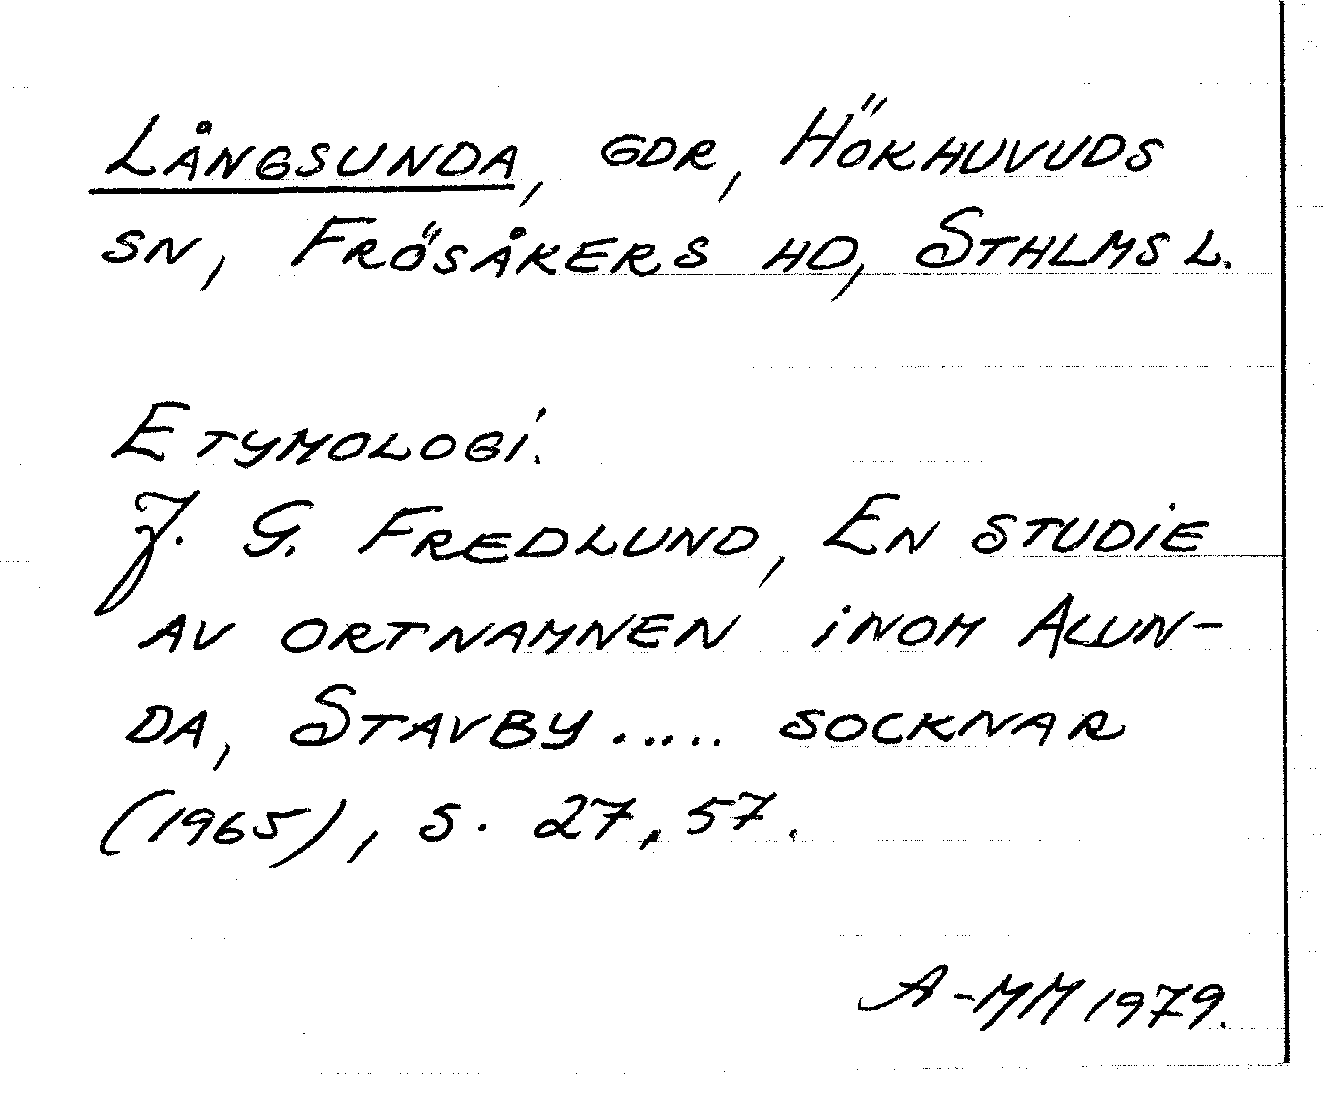 Långsunda, gdr, Hökhuvuds
sn, Frösåkers hd, Sthlms l.
Etymologi.
J. G. Fredlund, En studie
av ortnamnen inom Alun-
da, Stavby ..... socknar
(1965), s. 27, 57.
A-MM 1979.